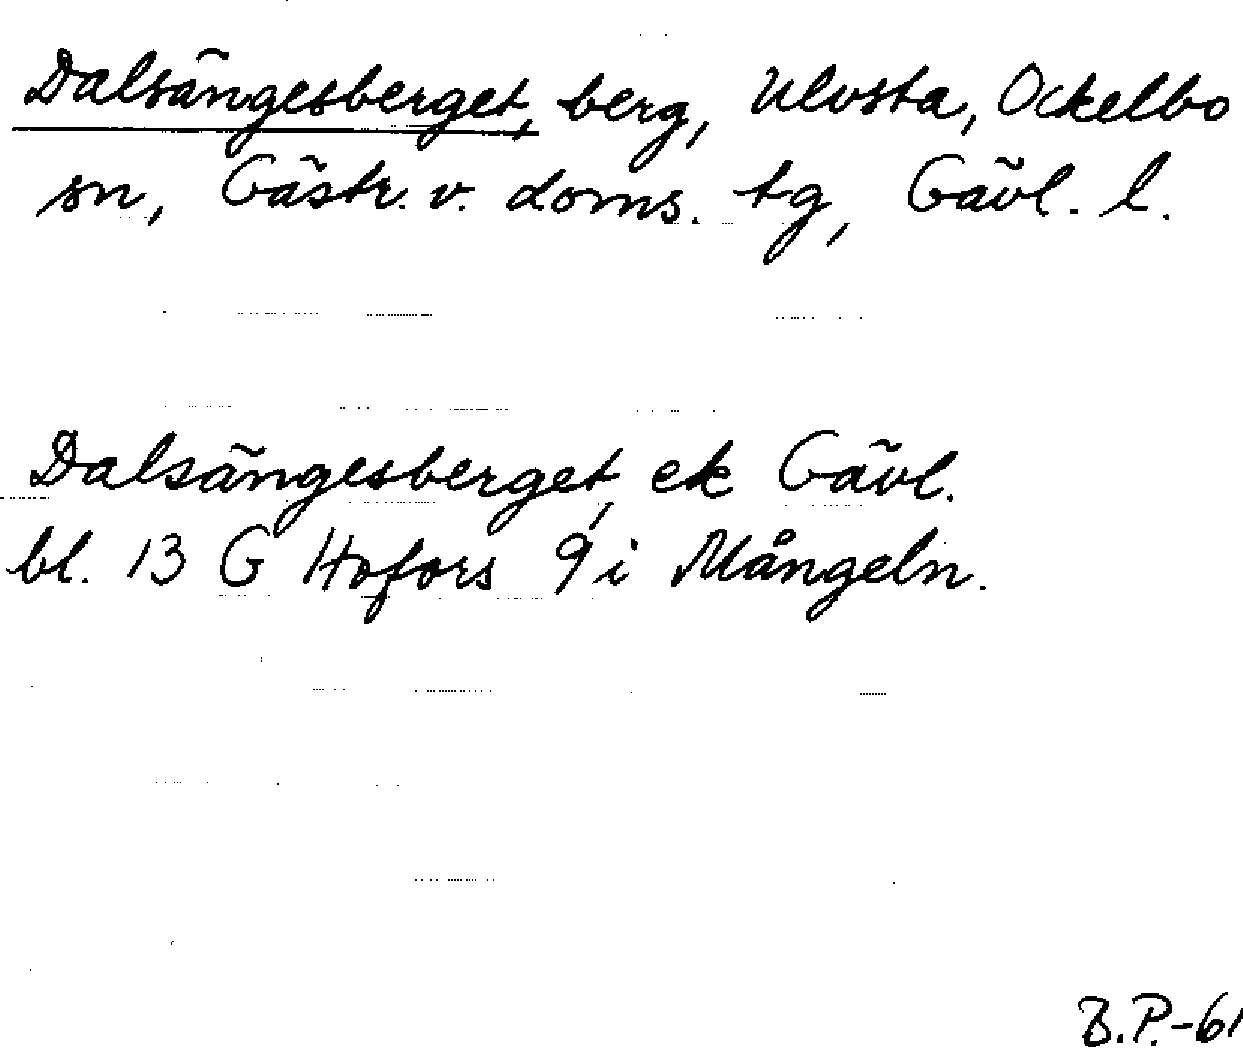 Dalsängesberget, berg, Ulvsta, Ockelbo
sn, Gästr. v. doms. tg, Gävl. l.
Dalsängesberget, ek Gävl.
bl. 13 G Hofors 9i Mångeln.
B.P.-61